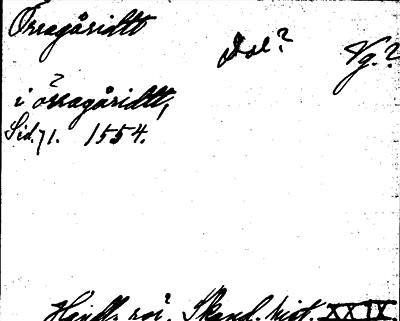 Örragåridtt
Dal? Vg.?
?
i örragåridtt,
Sid. 71. 1554.
Handl. rör. Skand. hist. XXIX.